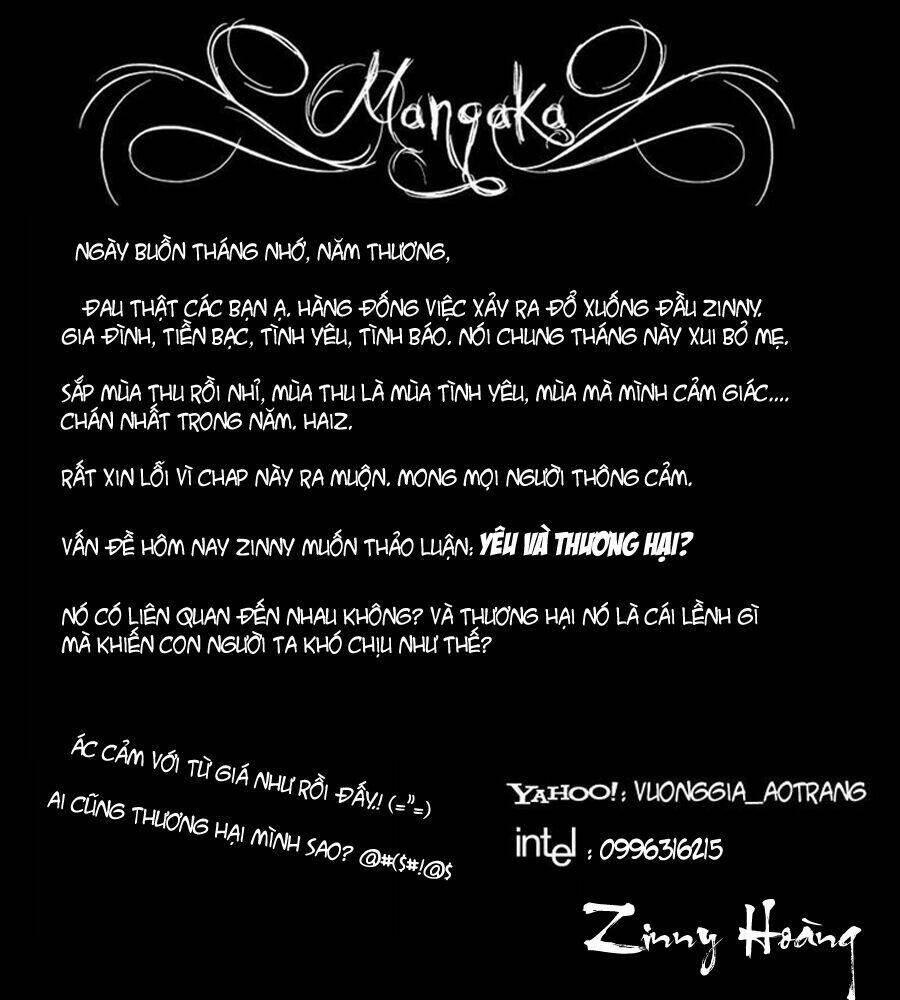 Mangaka
NGÀY BUỒN THÁNG NHỚ, NĂM THƯƠNG,
ĐAU THẬT CÁC BẠN Ạ. HÀNG ĐỐNG VIỆC XẢY RA ĐỔ XUỐNG ĐẦU ZINNY.
GIA ĐÌNH, TIỀN BẠC, TÌNH YÊU, TÌNH BÁO. NÓI CHUNG THÁNG NÀY XUI BỎ MẸ.
SẮP MÙA THU RỒI NHỈ, MÙA THU LÀ MÙA TÌNH YÊU, MÙA MÀ MÌNH CẢM GIÁC....
CHÁN NHẤT TRONG NĂM. HAIZ.
RẤT XIN LỖI VÌ CHAP NÀY RA MUỘN. MONG MỌI NGƯỜI THÔNG CẢM.
VẤN ĐỀ HÔM NAY ZINNY MUỐN THẢO LUẬN: YÊU VÀ THƯƠNG HẠI?
NÓ CÓ LIÊN QUAN ĐẾN NHAU KHÔNG? VÀ THƯƠNG HẠI NÓ LÀ CÁI LỀNH GÌ
MÀ KHIẾN CON NGƯỜI TA KHÓ CHỊU NHƯ THẾ?
ÁC CẢM VỚI TỪ GIÁ NHƯ RỒI ĐẤY! (="=)
AI CŨNG THƯƠNG HẠI MÌNH SAO? @#($#!@$
YAHOO!: VUONGGIA_AOTRANG
intel : 0996316215
Zinny Hoàng